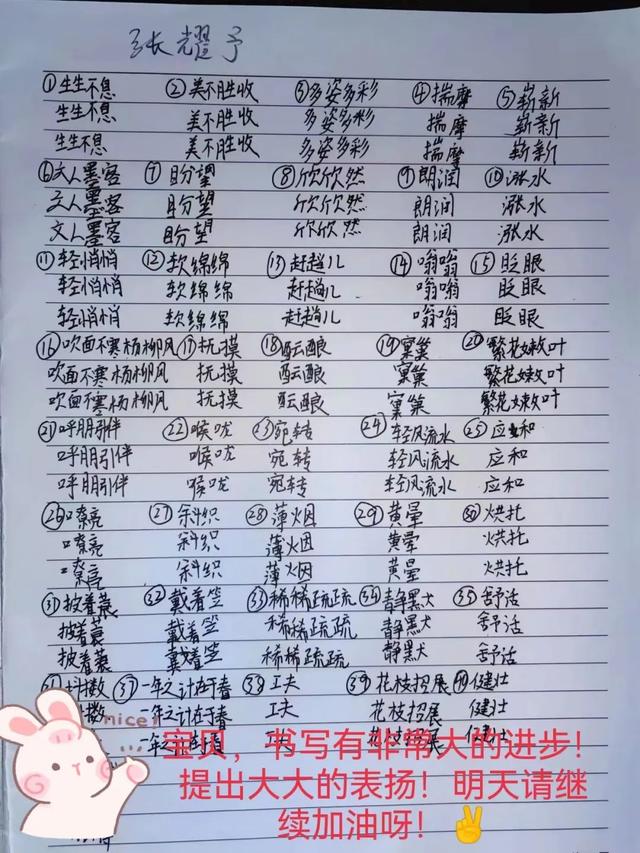 张耀予
①生生不息 ②美不胜收 ③多姿多彩 ④揣摩 ⑤崭新
生生不息 美不胜收 多姿多彩 揣摩 崭新
生生不息 美不胜收 多姿多彩 揣摩 崭新
⑥文人墨客 ⑦盼望 ⑧欣欣然 ⑨朗润 ⑩涨水
文人墨客 盼望 欣欣然 朗润 涨水
文人墨客 盼望 欣欣然 朗润 涨水
⑪轻悄悄 ⑫软绵绵 ⑬赶趟儿 ⑭嗡嗡 ⑮眨眼
轻悄悄 软绵绵 赶趟儿 嗡嗡 眨眼
轻悄悄 软绵绵 赶趟儿 嗡嗡 眨眼
⑯吹面不寒杨柳风 ⑰抚摸 ⑱酝酿 ⑲窠巢 ⑳繁花嫩叶
吹面不寒杨柳风 抚摸 酝酿 窠巢 繁花嫩叶
吹面不寒杨柳风 抚摸 酝酿 窠巢 繁花嫩叶
㉑呼朋引伴 ㉒喉咙 ㉓宛转 ㉔轻风流水 ㉕应和
呼朋引伴 喉咙 宛转 轻风流水 应和
呼朋引伴 喉咙 宛转 轻风流水 应和
㉖嘹亮 ㉗斜织 ㉘薄烟 ㉙黄晕 ㉚烘托
嘹亮 斜织 薄烟 黄晕 烘托
嘹亮 斜织 薄烟 黄晕 烘托
㉛披着蓑 ㉜戴着笠 ㉝稀稀疏疏 ㉞静默 ㉟舒活
披着蓑 戴着笠 稀稀疏疏 静默 舒活
披着蓑 戴着笠 稀稀疏疏 静默 舒活
抖擞 ㊲一年之计在于春 ㊳工夫 ㊴花枝招展 ㊵健壮
擞 一年之计在于春 工夫 花枝招展 健壮
nice! 一年之计在于春 工夫 花枝招展 健壮
宝贝，书写有非常大的进步！
提出大大的表扬！明天请继
续加油呀！✌